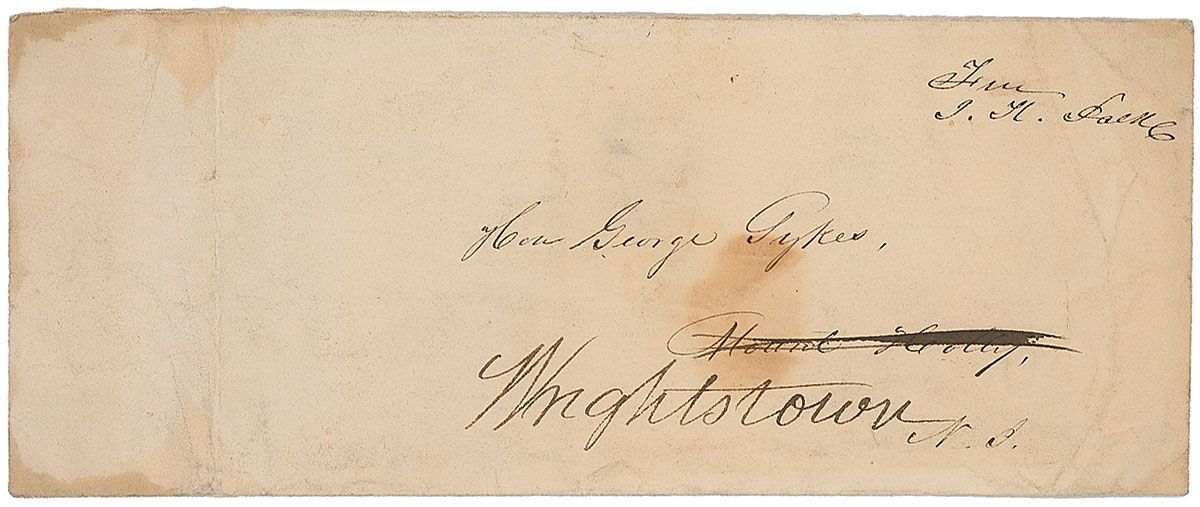 Free
J. K. Polk
Hon George Sykes,
Mount Holly,
Wrightstown
N. J.